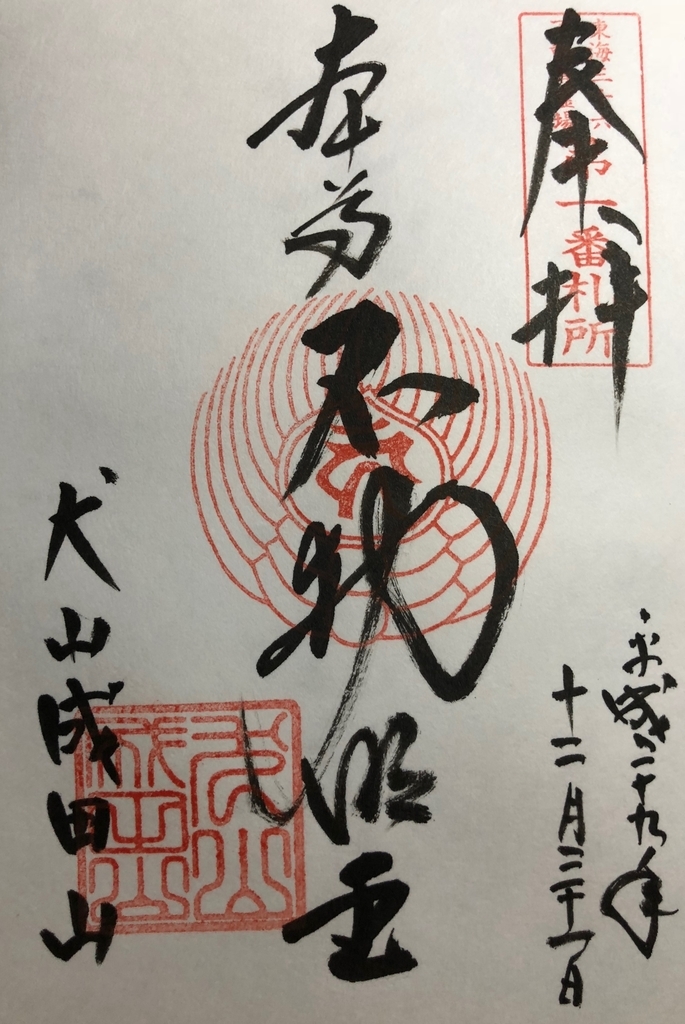 奉拝
東海三十六
不動尊霊場
第一番札所
平成二十九年
十二月三十一日
本尊
不動明王
犬山成田山
犬山
成田山